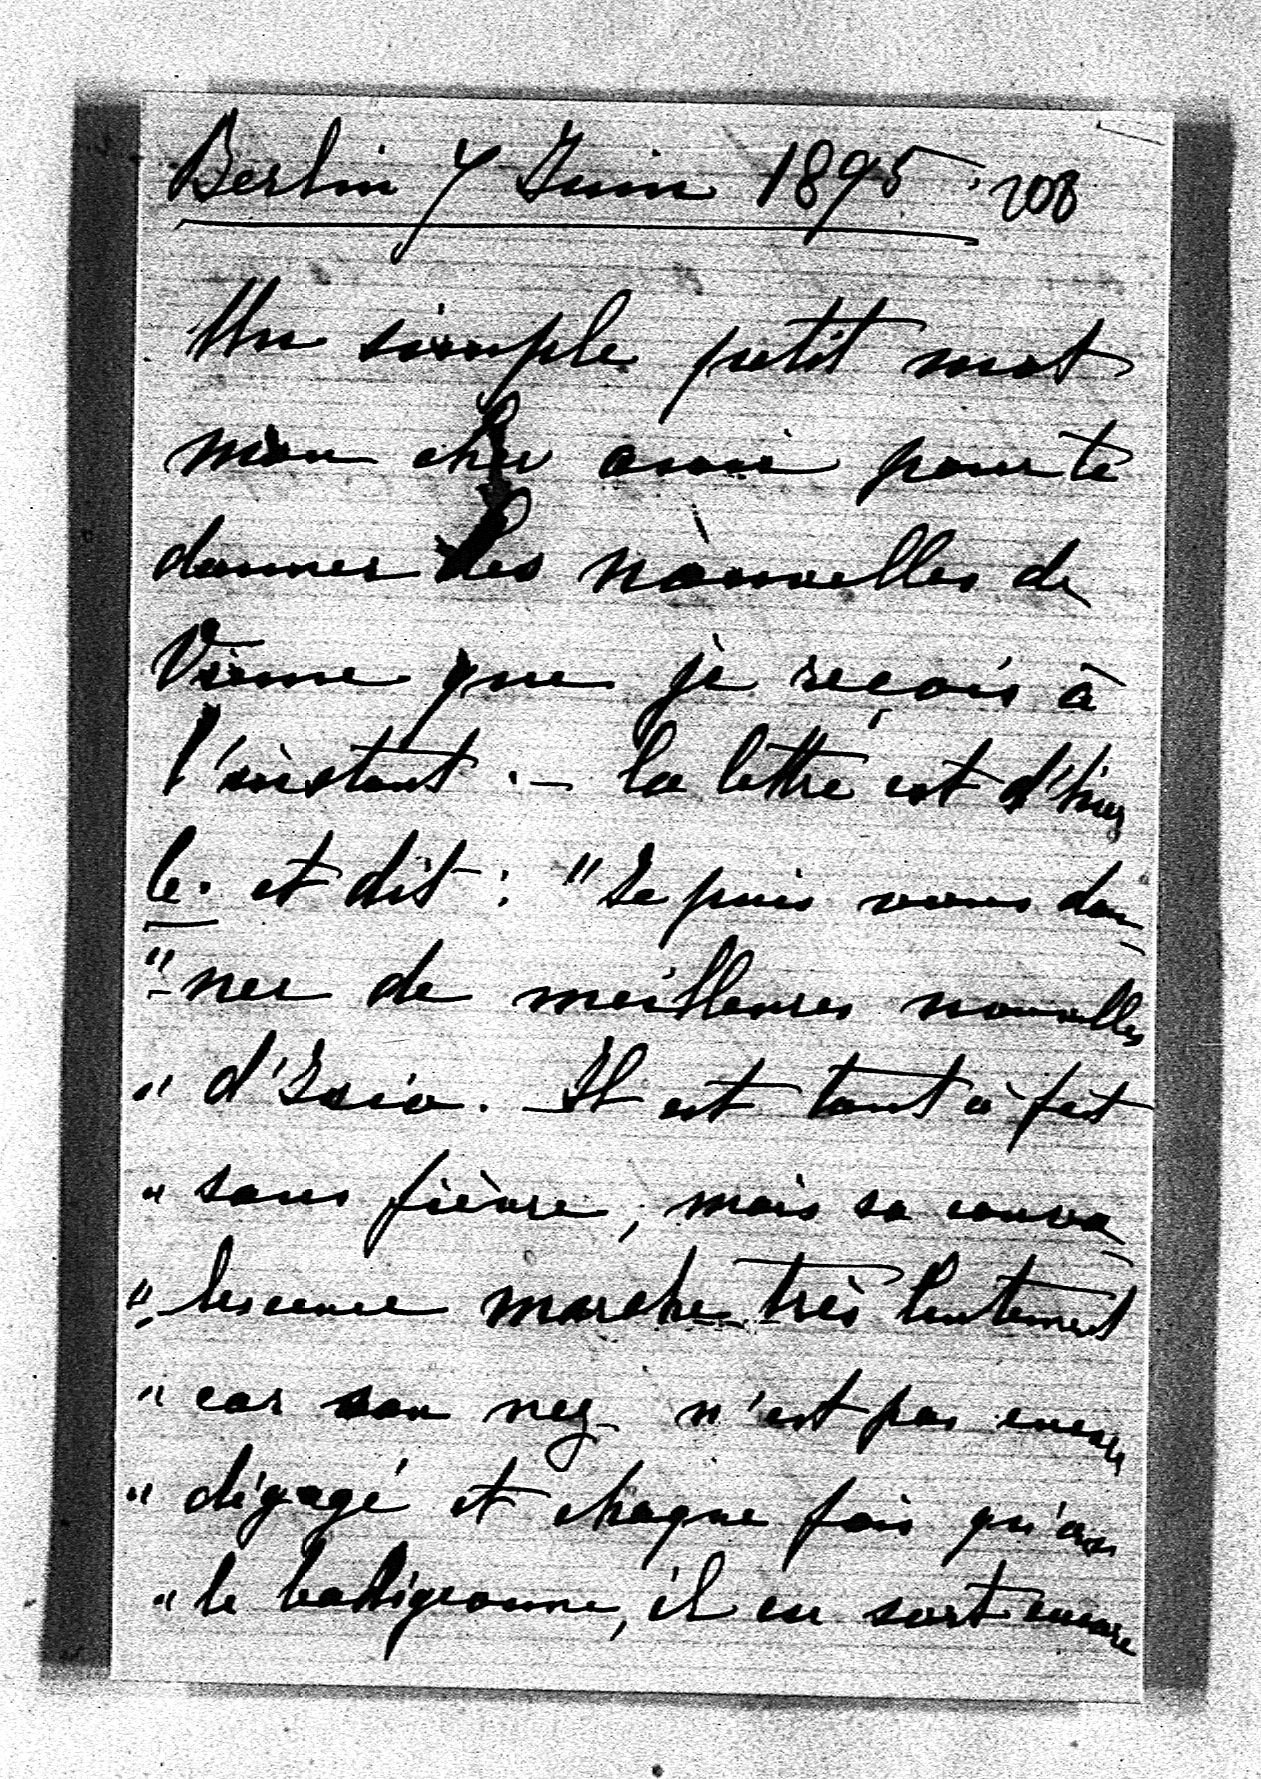 Berlin 7 Juin 1895 208
Un simple petit mot
mon cher ami pour te
donner des nouvelles de
Vienne que je reçois à
l'instant. – la lettre est d'hier
le. et dit : "Je puis vous don
"ner de meilleures nouvelles
" d' Il est tout à fait
" sans fièvre, mais sa conva
"lescence marche très lentement
" car son nez n'est pas encore
" dégagé et chaque fois qu'on
" le badigeonne, il en sort encore